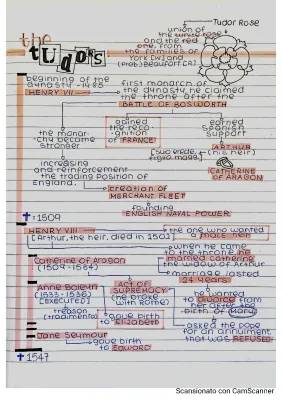 Tudor Rose
union of
the white rose
and the red
one, from
the families of
York (w) and
the
TUDORS
beginning of the
dynasty - 1485
HENRY VII
first monarch of
the dynasty, he claimed
the throne after the
BATTLE OF BOSWORTH
the monar-
chy became
stronger
gained
the reco-
gnition
of FRANCE
gained
Spanish
support
ARTHUR
(his heir)
(suo erede,
figlio magg.)
CATHERINE
OF ARAGON
increasing
and reinforcement
the trading position of
England.
creation of
MERCHANT FLEET
founding
ENGLISH NAVAL POWER
✝ 1509
HENRY VIII
the one who wanted
a male heir
[Arthur, the heir, died in 1502]
when he came
to the throne he
married Catherine
the widow of Arthur
Catherine of Aragon
(1509-1534)
marriage lasted
24 years
Anne Boleyn
(1533-1536)
[executed]
ACT OF
SUPREMACY
(he broke
with Rome)
he wanted
to divorce from
her after the
birth of Mary
treason
(tradimento)
gave birth
to Elizabeth
asked the pope
for an annulment
that was REFUSED
Jane Seymour
gave birth
to Edward
✝ 1547
Scansionato con CamScanner